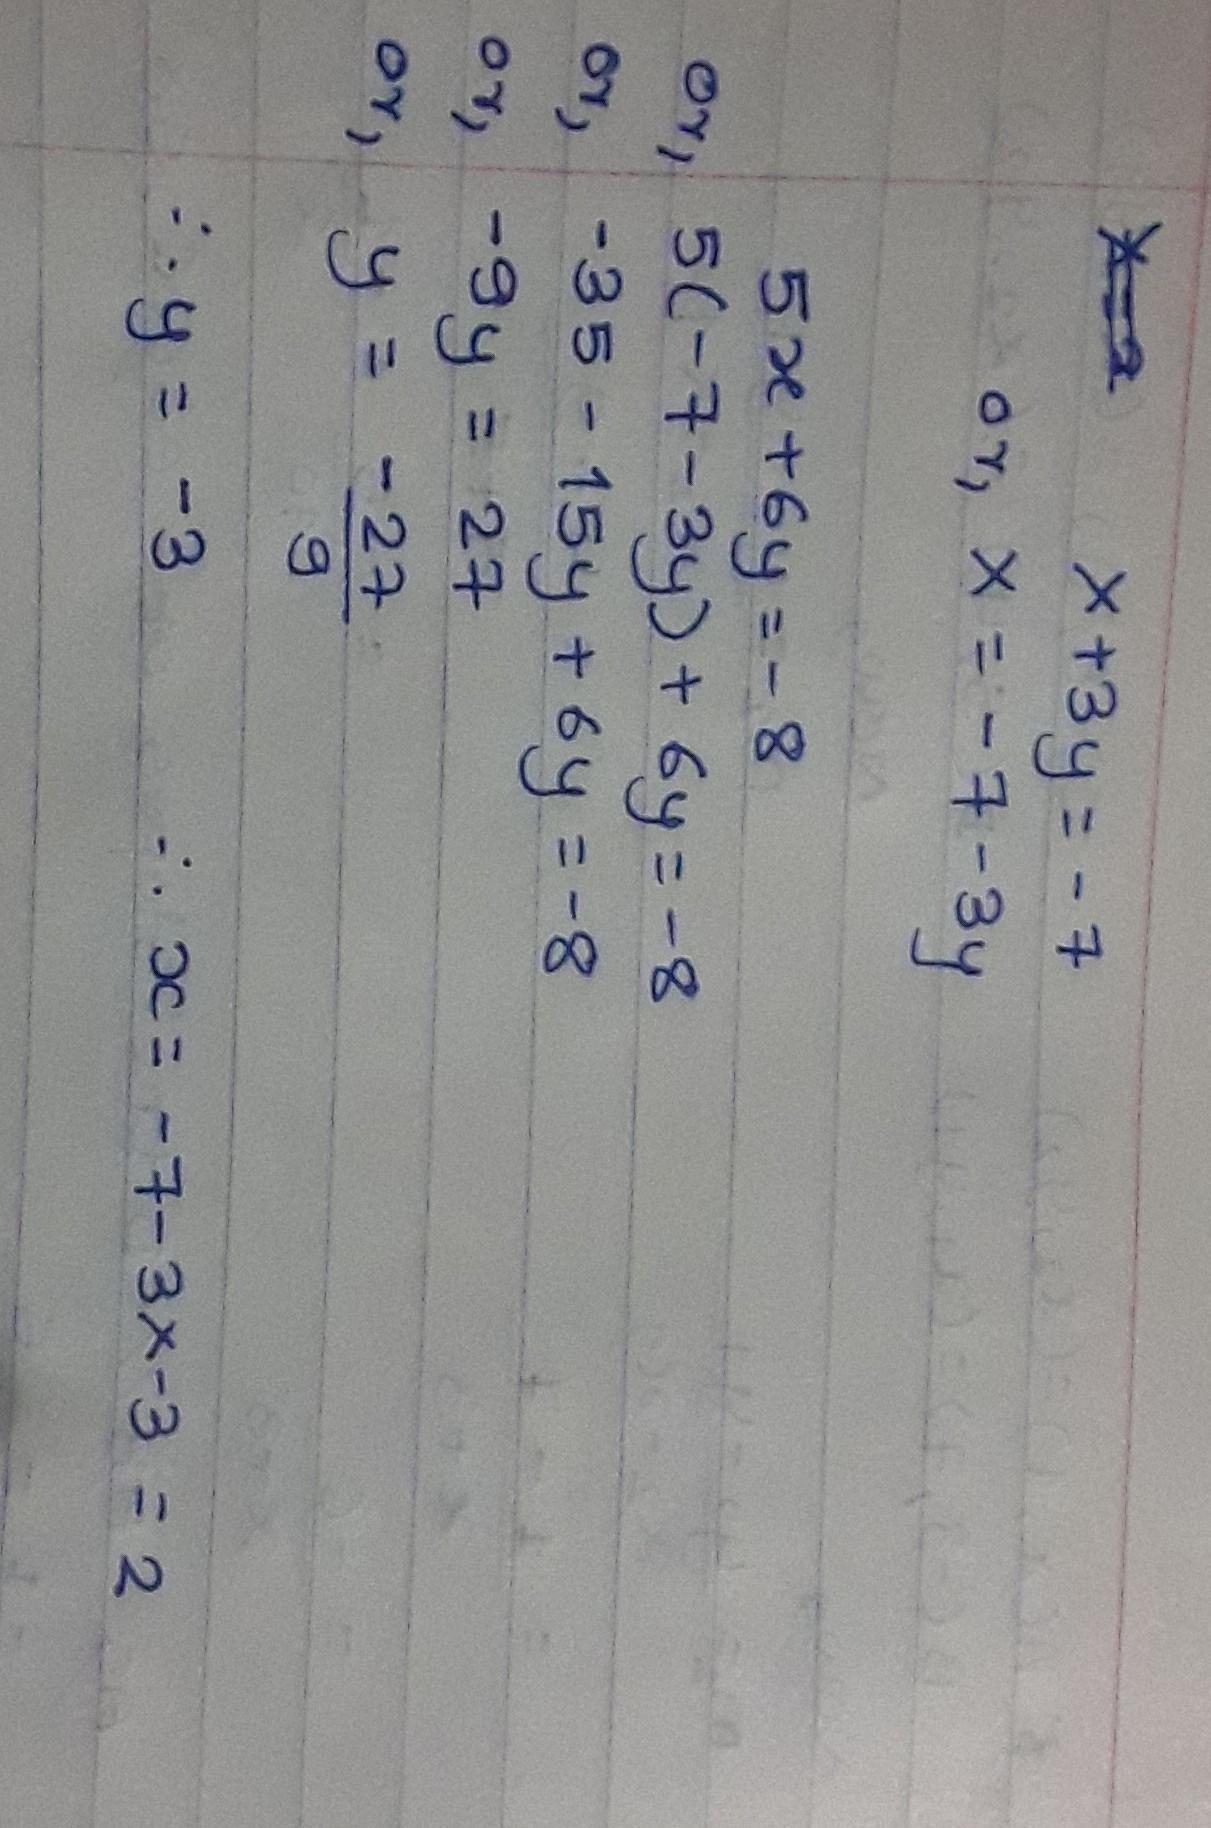 x+3y = -7
or, x = -7-3y
5x+6y = -8
or, 5(-7-3y)+6y = -8
or, -35-15y+6y = -8
or, -9y = 27
or, y = -27/9
∴ y = -3 ∴ x = -7-3x-3 = 2